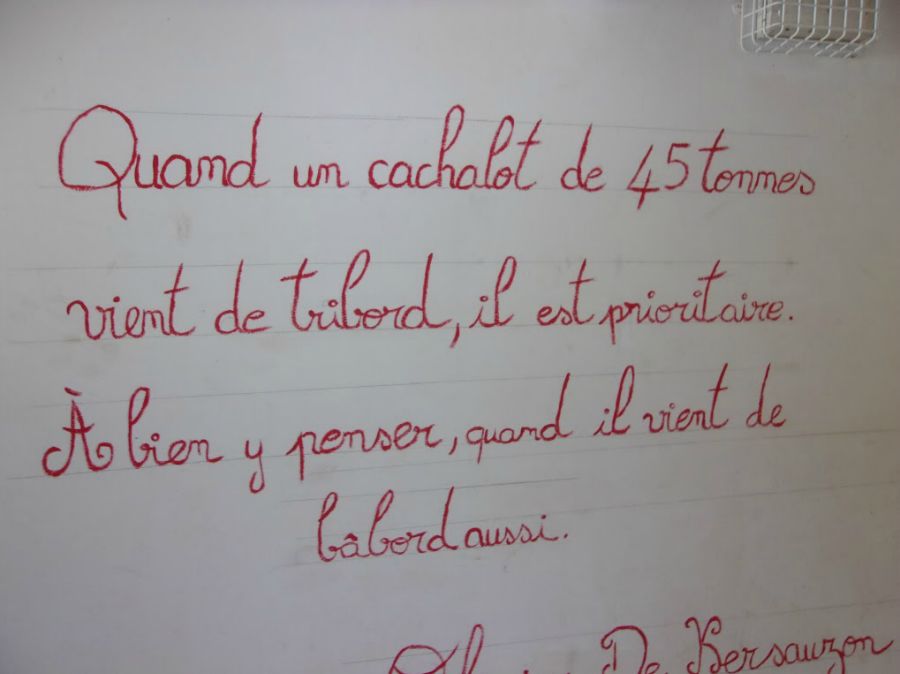 Quand un cachalot de 45 tonnes
vient de tribord, il est prioritaire.
À bien y penser, quand il vient de
bâbord aussi.
De Kersauzon